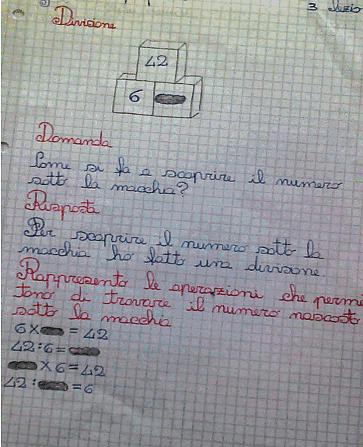 3
Divisione
42
6
Domanda
Come si fa a scoprire il numero
sotto la macchia?
Risposta
Per scoprire il numero sotto la
macchia ho fatto una divisone
Rappresento le operazioni che permi
tono di trovare il numero nascost
sotto la macchia
6 × = 42
42 : 6 =
× 6 = 42
42 : = 6